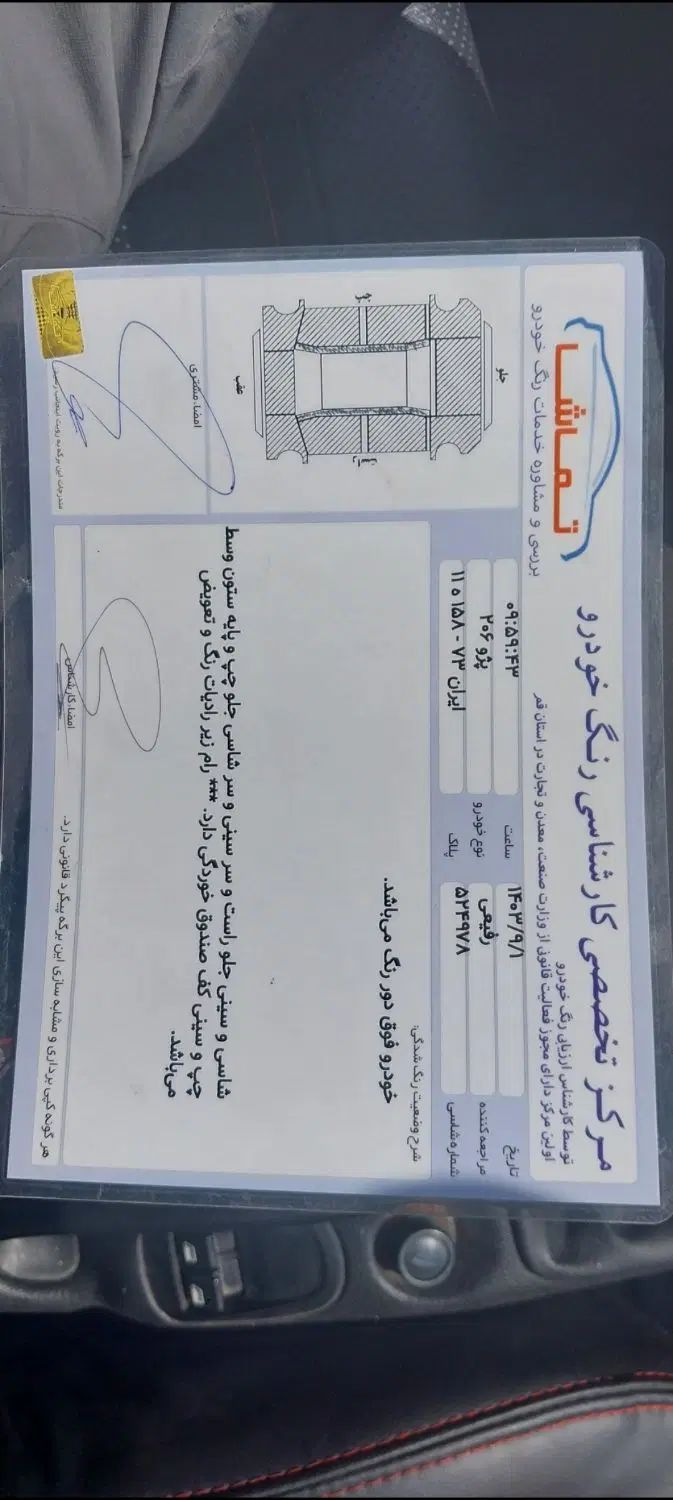 مرکز تخصصی کارشناسی رنگ خودرو
توسط کارشناس ارزیابی رنگ خودرو
اولین مرکز دارای مجوز فعالیت قانونی از وزارت صنعت، معدن و تجارت در استان قم
تماشا
بررسی و مشاوره خدمات رنگ خودرو
تاریخ ۱۴۰۳/۹/۱ ساعت ۰۹:۵۹:۴۳
مراجعه کننده رفیعی نوع خودرو پژو ۲۰۶
شماره شاسی ۵۲۴۹۷۸ پلاک ایران ۷۳ - ۱۵۸ ه ۱۱
شرح وضعیت رنگ شدگی:
خودرو فوق دور رنگ می‌باشد.
شاسی و سینی جلو راست و سر سینی و سر شاسی جلو چپ و پایه ستون وسط
چپ و سینی کف صندوق خوردگی دارد. *** رام زیر رادیات رنگ و تعویض
می‌باشد.
جلو
عقب
امضاء مشتری
امضاء کارشناس
مندرجات این برگه به رویت اینجانب رسید
هر گونه کپی برداری و مشابه سازی این برگه پیگرد قانونی دارد.